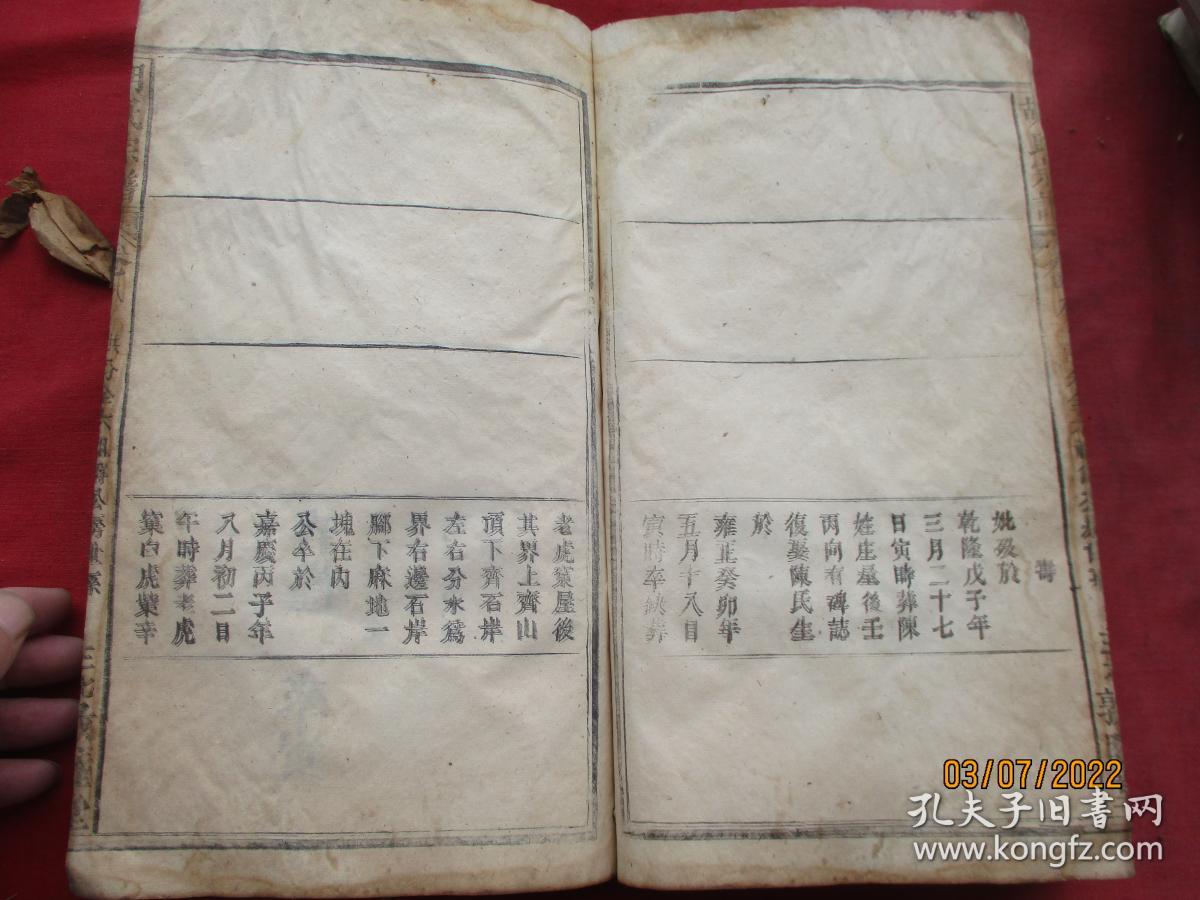 壽
妣歿於
乾隆戊子年
三月二十七
日寅時葬陳
姓庄屋後壬
丙向有碑誌
復娶陳氏生
於
雍正癸卯年
五月十八日
寅時卒缺葬
老虎窠屋後
其界上齊山
頂下齊石岸
左右分水爲
界右邊石岸
腳下麻地一
塊在內
公卒於
嘉慶丙子年
八月初二日
午時葬老虎
窠白虎 辛
03/07/2022
孔夫子旧書网
www.kongfz.com